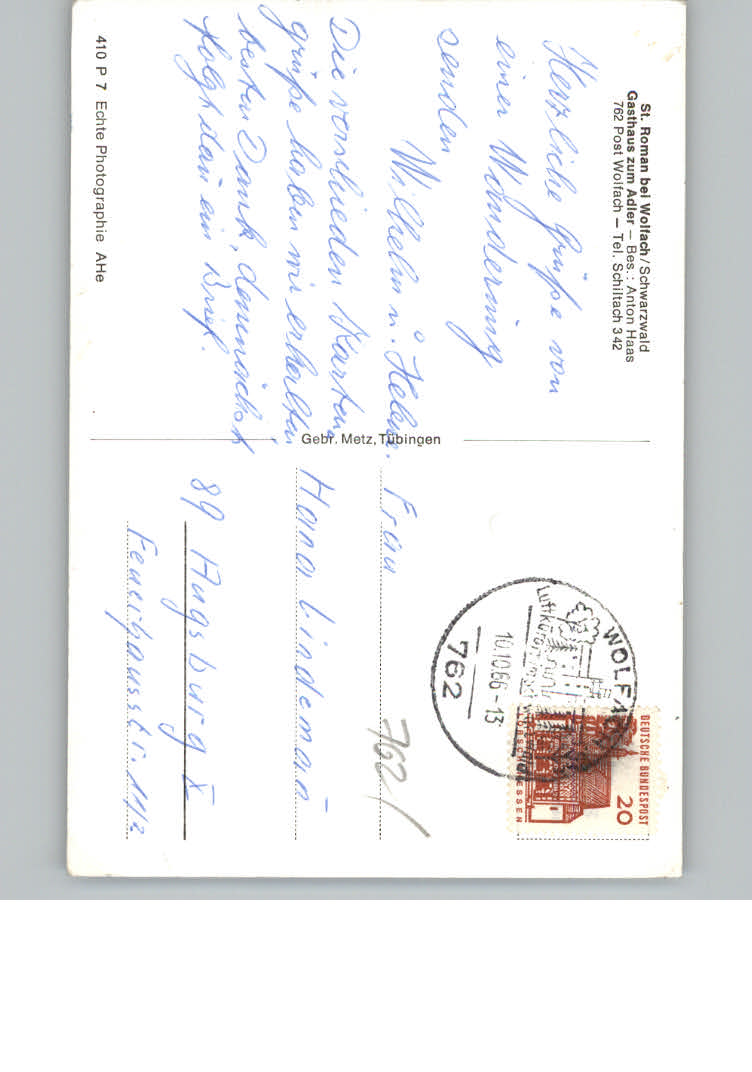 St. Roman bei Wolfach/Schwarzwald
Gasthaus zum Adler – Bes.: Anton Haas
762 Post Wolfach – Tel. Schiltach 342
Herzliche Grüße von
einer Wanderung
senden
Wilhelm u. Helene.
Die verschieden Karten
grüße haben wir erhalten
besten Dank, demnächst
folgt dan ein Brief.
410 P 7 Echte Photographie AHe
Gebr. Metz, Tübingen
DEUTSCHE BUNDESPOST
20
WOLFACH
Luftkurort
10.10.66-13
762
762/
Frau
Hana Lindeman
89 Augsburg X
Feuerhausstr. 11/2